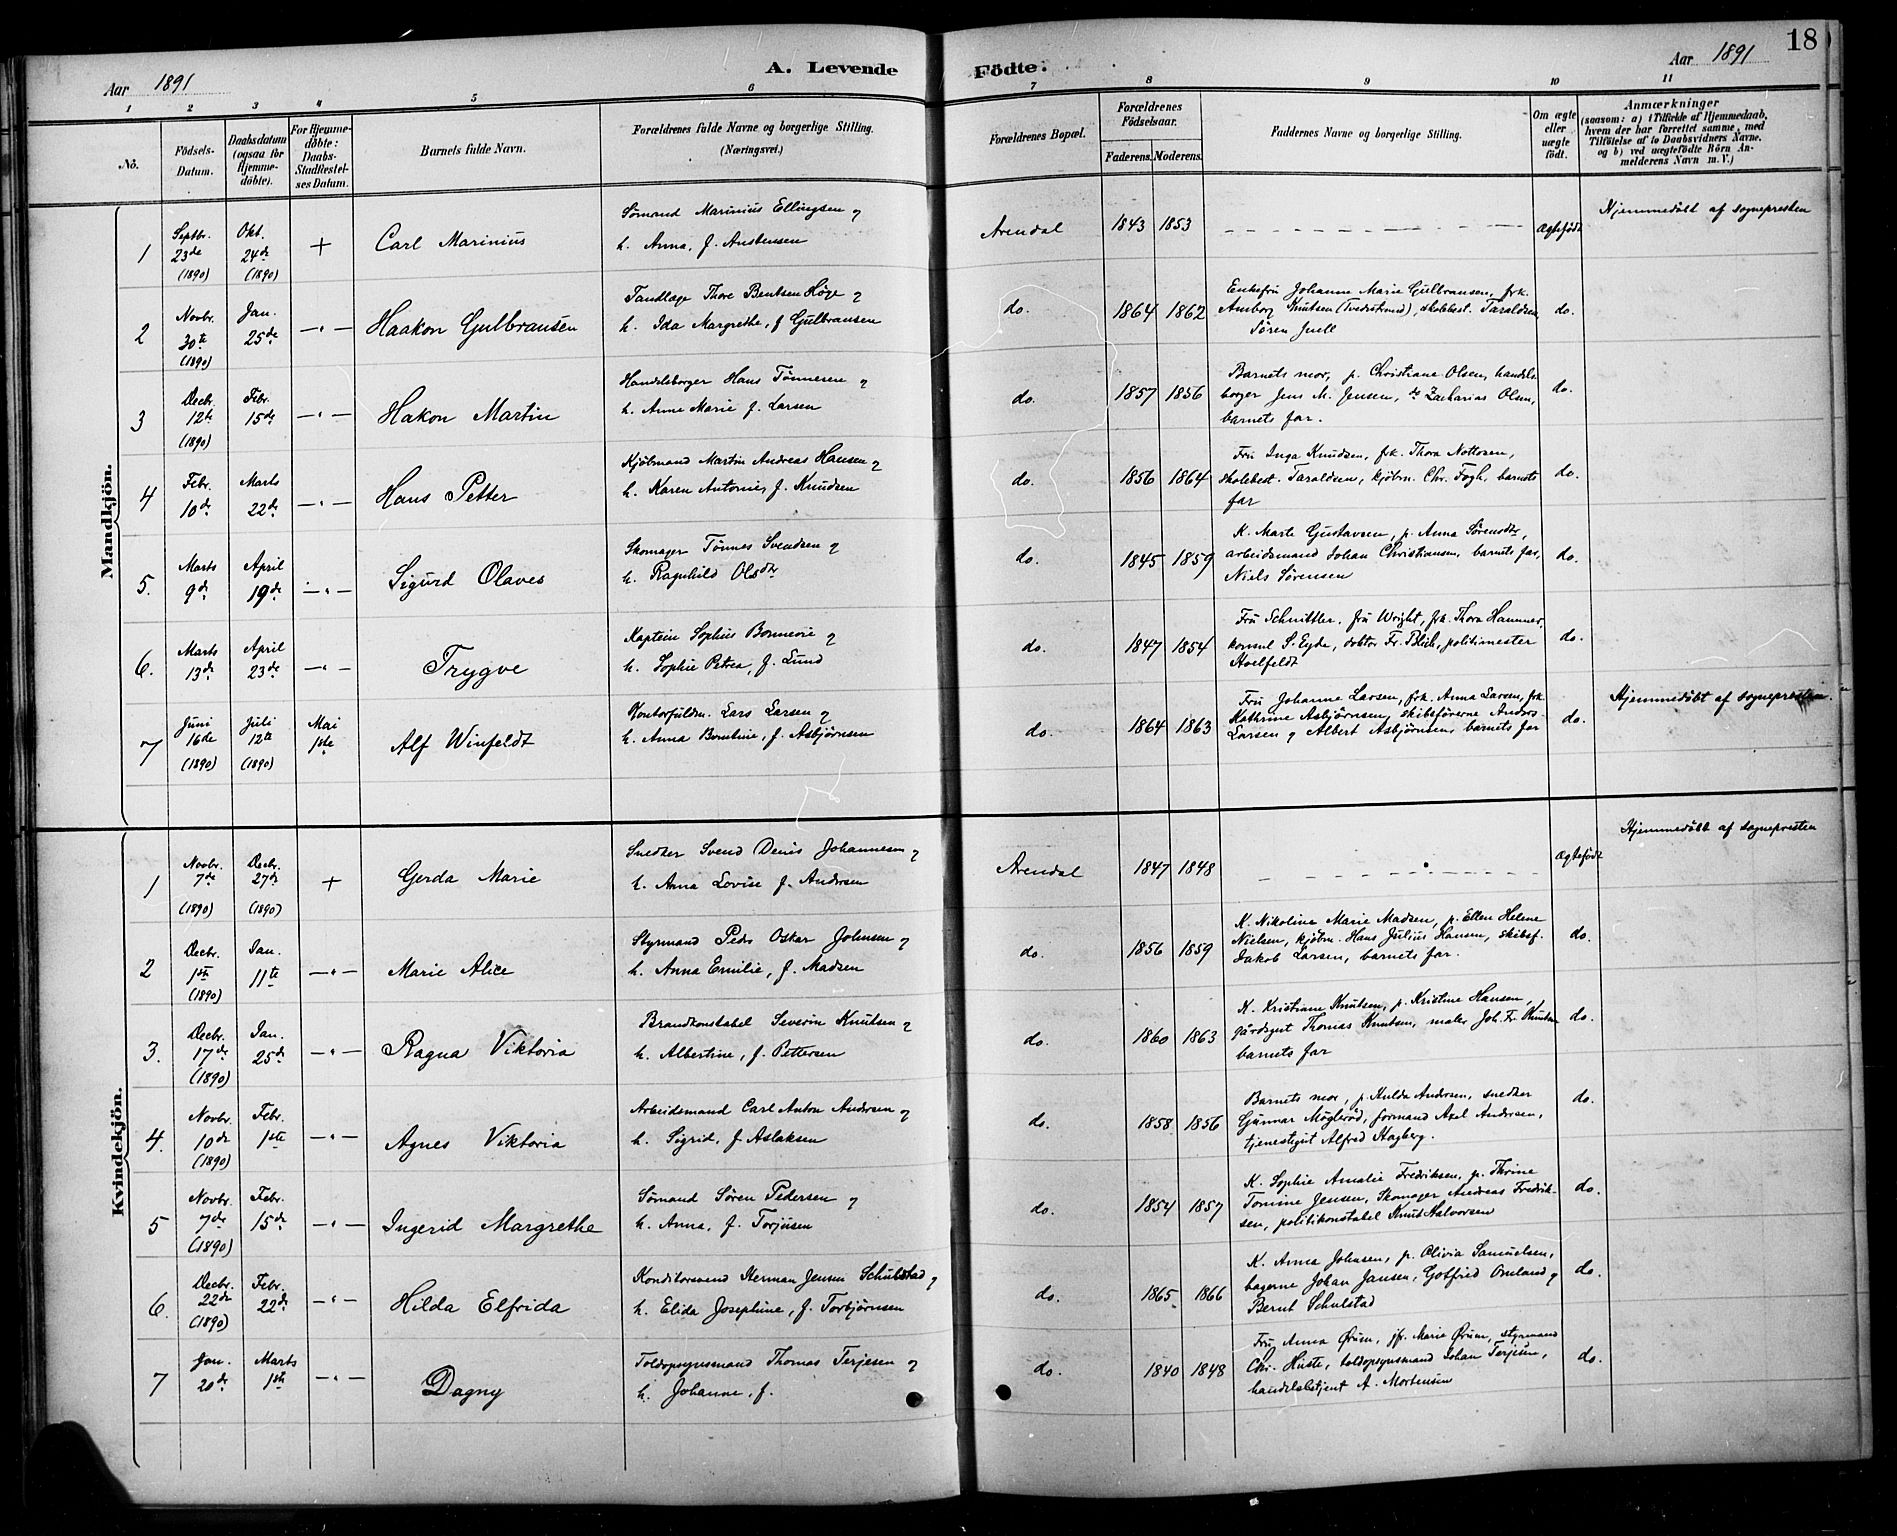 18
Aar 1891
A. Levende Födte.
Aar 1891
1 2 3 4 5 6 7 8 9 10 11
No.
Födsels-Datum.
Daabsdatum (ogsaa for Hjemme-döbte).
For Hjemme-döbte: Daabs-Stadfestel-ses Datum.
Barnets fulde Navn.
Forældrenes fulde Navne og borgerlige Stilling.
(Næringsvei.)
Forældrenes Bopæl.
Forældrenes Födselsaar.
Faderens. Moderens.
Faddernes Navne og borgerlige Stilling.
Om ægte eller uægte födt.
Anmærkninger
(saasom: a) i Tilfælde af Hjemmedaab, hvem der har forrettet samme, med Tilföielse af to Daabsvidners Navne. og b) ved uægtefödte Börn Anmelderens Navn m. V.)
Mandkjön.
1
Septbr. 23de (1890)
Okt. 24de (1890)
+
Carl Marinius
Sømand Marinius Ellingsen og
h. Anna, f. Austensen
Arendal
1843 1853
Ægtefødt
Hjemmedöbt af sognepresten
2
Novbr. 30te (1890)
Jan. 25de
—"—
Haakon Gulbransen
Tandlæge Thore Bentsen Høge og
h. Ida Margrethe, f. Gulbransen
do.
1864 1862
Enkefru Johanne Marie Gulbransen, frk.
Amborg Knutsen (Tvedestrand), skolebest. Taraldsen,
Søren Juell
do.
3
Decbr. 12te (1890)
Febr. 15de
—"—
Hakon Martin
Handelsborger Hans Tönnesen og
h. Anne Marie f. Larsen
do.
1857 1856
Barnets mor, p. Christiane Olsen, handels-
borger Jens M. Jensen, do Zacharias Olsen,
barnets far.
do.
4
Febr. 10de
Marts 22de
—"—
Hans Petter
Kjöbmand Martin Andreas Hansen og
h. Karen Antonie, f. Knudsen
do.
1856 1864
Fru Inga Knudsen, frk. Thora Nottosen,
skolebest. Taraldsen, kjöbm. Chr. Fogh, barnets
far
do.
5.
Marts 9de
April 19de
—"—
Sigurd Olaves
Skomager Tönnes Svendsen og
h. Ragnhild Olsdtr
do.
1845 1859
K. Marte Gustavsen, p. Anna Sørensdtr,
arbeidsmand Johan Christiansen, barnets far,
Niels Sørensen
do.
6.
Marts 13de
April 23de
—"—
Trygve
Kaptein Sophus Bonnevie og
h. Sophie Petrea, f. Lund
do.
1847 1854
Fru Schnitler, fru Wright, frk. Thora Hammer,
konsul S. Eyde, doktor Fr. Blich, politimester
Hvelfeldt
do.
7
Juni 16de (1890)
Juli 12te (1890)
Mai 1ste
Alf Winfeldt
Kontorfuldm. Lars Larsen og
h. Anna Berntine, f. Asbjørnsen
do.
1864 1863
Fru Johanne Larsen, frk. Anna Larsen, frk.
Kathrine Asbjørnsen, skibsførerne Anders
Larsen og Albert Asbjørnsen, barnets far
do.
Hjemmedöbt af sognepresten.
Kvindekjön.
1
Novbr. 7de (1890)
Decbr. 27de (1890)
+
Gerda Marie
Snedker Svend Denis Johannesen og
h. Anna Lovise f. Andersen
Arendal
1847 1848
Ægtefødt
Hjemmedöbt af sognepresten
2
Decbr. 1ste (1890)
Jan. 11te
—"—
Marie Alice
Styrmand Peder Oskar Johnsen og
h. Anna Emilie, f. Madsen
do.
1856 1859
K. Nikoline Marie Madsen, p. Ellen Helene
Nielsen, kjøbm. Hans Julius Hansen, skibsf.
Jakob Larsen, barnets far.
do.
3.
Decbr. 17de (1890)
Jan. 25de
—"—
Ragna Viktoria
Brandkonstabel Severin Knutsen og
h. Albertine, f. Pettersen
do.
1860 1863
K. Kristiane Knutsen, p. Kristine Hansen,
gårdsgut Thomas Knutsen, maler Joh. Fr. Knutsen
barnets far
do.
4.
Novbr. 10de (1890)
Febr. 1ste
—"—
Agnes Viktoria
Arbeidsmand Carl Anton Andersen og
h. Sigrid, f. Aslaksen
do.
1858 1856
Barnets mor, p. Hulda Andersen, snedker
Gunnar Möglerød, formand Axel Andersen,
tjenestegut Alfred Hagberg.
do.
5
Novbr. 7de (1890)
Febr. 15de
—"—
Ingerid Margrethe
Sømand Søren Pedersen og
h. Anna, f. Torjusen
do.
1854 1857
K. Sophie Amalie Fredriksen, p. Thrine
Tomine Jensen, Skomager Andreas Fredrik-
sen, politikonstabel Knut Halvorsen
do.
6.
Decbr. 22de (1890)
Febr. 22de
—"—
Hilda Elfrida
Konditorsvend Herman Jensen Schulstad og
h. Elida Josephine, f. Torbjørnsen
do.
1865 1866
K. Anna Johnsen, p. Olivia Samuelsen,
bagerne Johan Jansen, Gotfred Omland og
Bernt Schulstad
do.
7
Jan. 20de
Marts 1ste
—"—
Dagny
Toldopsynsmand Thomas Terjesen og
h. Johanne, f.
do.
1840 1848
Fru Anna Ørum, jfr. Marie Ørum, styrmand
Chr. Huste, toldopsynsmand Johan Terjesen,
handelsbetjent A. Mortensen
do.